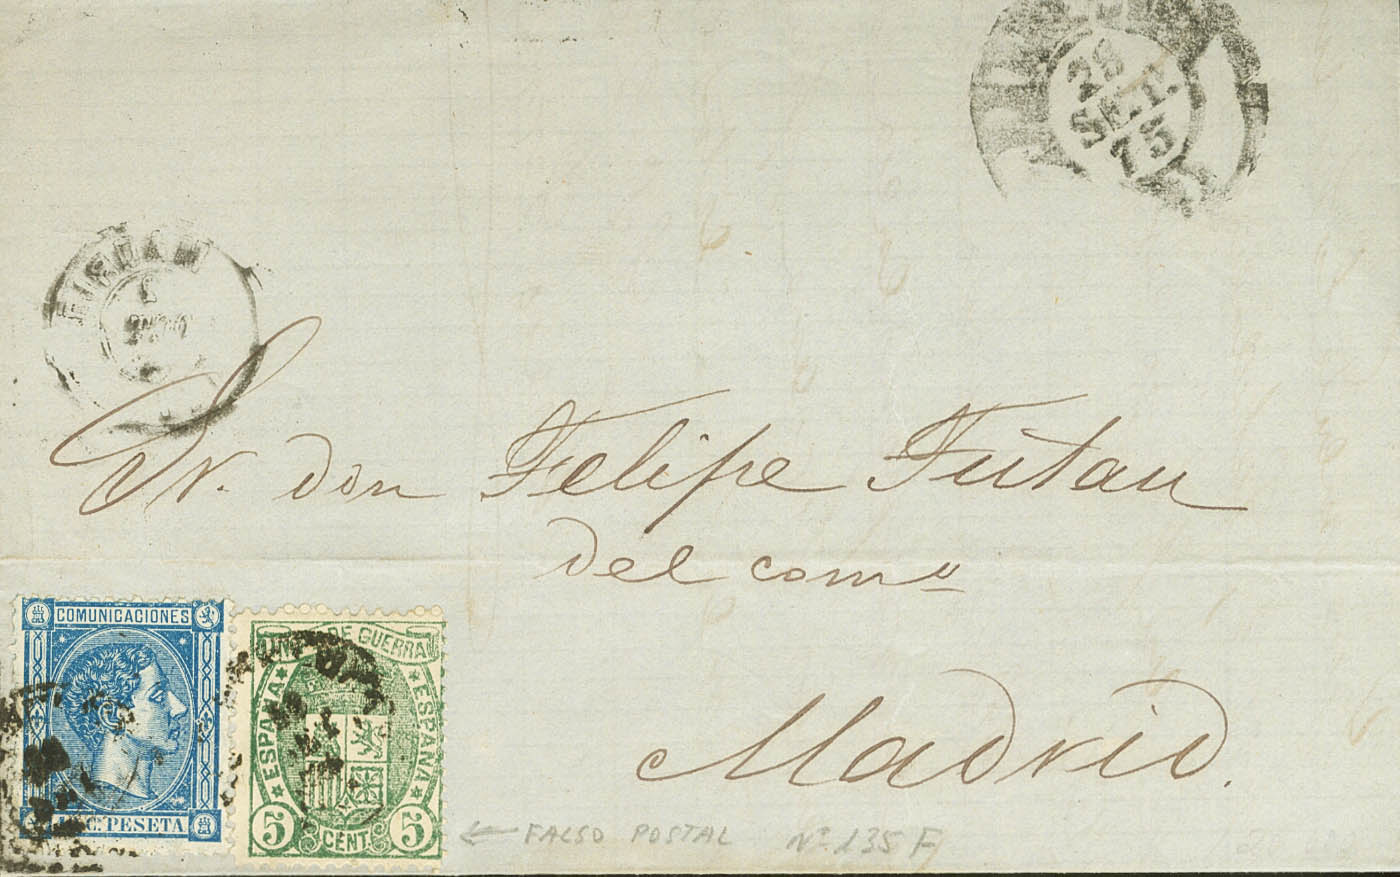 28
SET.
75
Sr. don Felipe Tutau
del comº
Madrid.
COMUNICACIONES
C. PESETA
DE GUERRA
ESPAÑA
ESPAÑA
5 CENT. 5
← FALSO POSTAL Nº 135 F